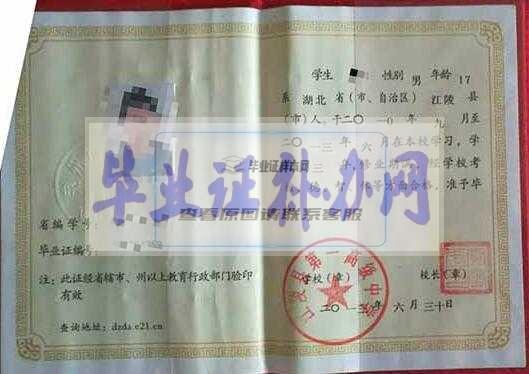 学生 性别 男 年龄 17
系 湖北 省(市、自治区) 江陵 县
(市)人、于二〇一〇年 九 月至
二〇一三年 六 月在本校学习,学
三 年 修业期 学校考
等方面合格,准予毕
毕业证样本网
毕业证补办网
查看原图请联系客服
省编学号:
毕业证编号:
注:此证经省辖市、州以上教育行政部门验印
有效
查询地址:dzda.e21.cn
学校(章) 校长(章)
江陵县第一高级中学
二〇一三年 六 月 三十日